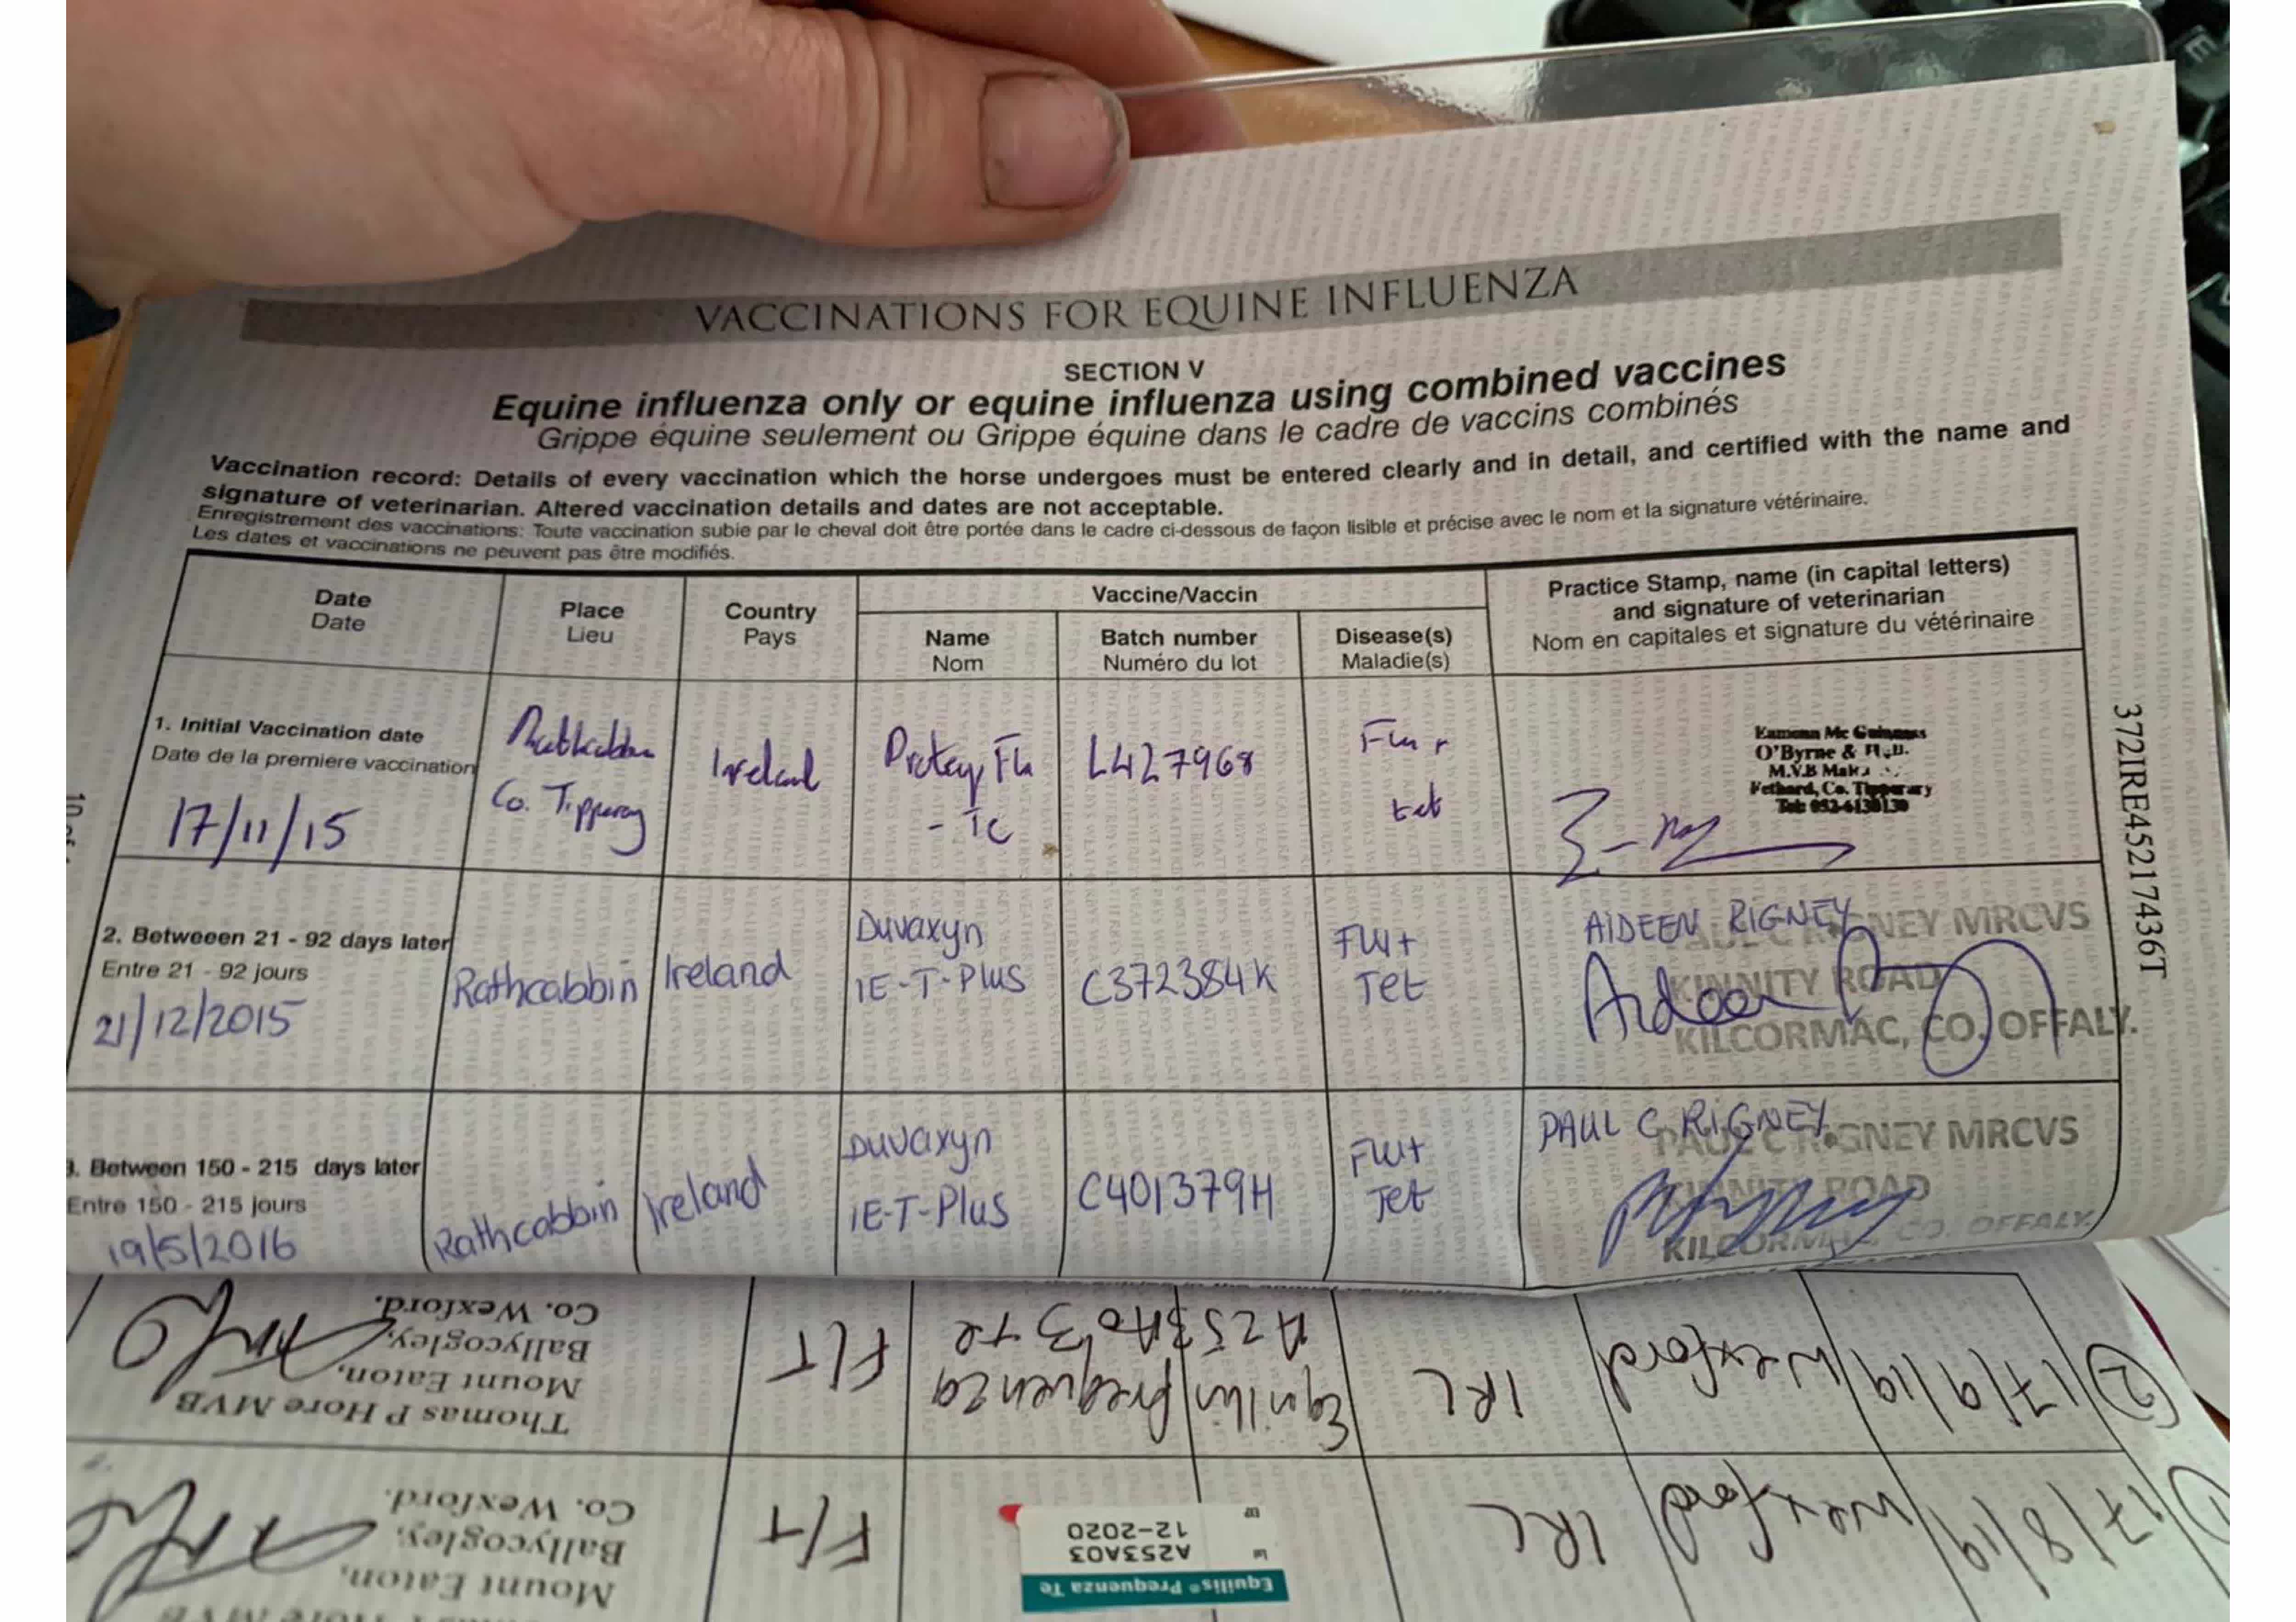 VACCINATIONS FOR EQUINE INFLUENZA
SECTION V
Equine influenza only or equine influenza using combined vaccines
Grippe équine seulement ou Grippe équine dans le cadre de vaccins combinés
Vaccination record: Details of every vaccination which the horse undergoes must be entered clearly and in detail, and certified with the name and
signature of veterinarian. Altered vaccination details and dates are not acceptable.
Enregistrement des vaccinations: Toute vaccination subie par le cheval doit être portée dans le cadre ci-dessous de façon lisible et précise avec le nom et la signature vétérinaire.
Les dates et vaccinations ne peuvent pas être modifiés.
Date
Date
Place
Lieu
Country
Pays
Vaccine/Vaccin
Name
Nom
Batch number
Numéro du lot
Disease(s)
Maladie(s)
Practice Stamp, name (in capital letters)
and signature of veterinarian
Nom en capitales et signature du vétérinaire
1. Initial Vaccination date
Date de la premiere vaccination
17/11/15
Rathcabbin
Co. Tipperary
Ireland
Proteq Flu
- Te
L427968
Flu +
tet
O'Byrne &
M.V.B
Fethard, Co. Tipperary
Tel: 052-6130130
2. Betweeen 21 - 92 days later
Entre 21 - 92 jours
21/12/2015
Rathcabbin
Ireland
Duvaxyn
IE-T-Plus
C372384K
Flu+
Tet
AIDEEN RIGNEY
PAUL C RIGNEY MRCVS
KINNITY ROAD
KILCORMAC, CO. OFFALY.
Aideen
3. Between 150 - 215 days later
Entre 150 - 215 jours
19/5/2016
Rathcabbin
Ireland
Duvaxyn
IE-T-Plus
C401379H
Flu+
Tet
PAUL C RIGNEY
PAUL C RIGNEY MRCVS
KINNITY ROAD
KILCORMAC, CO. OFFALY.
372IRE45217436T
1
17/8/19
Wexford
IRL
Equilis® Prequenza Te
A253A03
12-2020
F/T
Mount Eaton,
Ballycogley,
Co. Wexford.
2
17/9/19
Wexford
IRL
Equilis Prequenza
Te
F/T
Thomas P Hore MVB
Mount Eaton,
Ballycogley,
Co. Wexford.